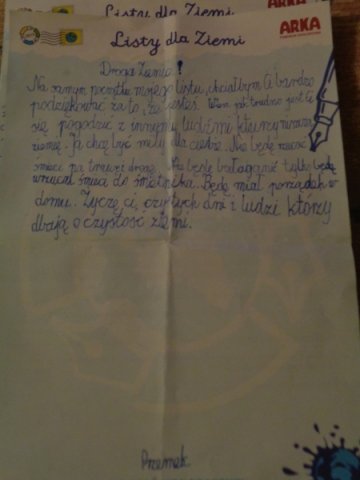 Listy dla Ziemi
ARKA
Listy dla Ziemi
ARKA
Droga Ziemio!
Na samym początku mojego listu, chciałbym Ci bardzo
podziękować za to, że jesteś. Wiem jak trudno jest Ci
się pogodzić z innymi ludźmi którzy niszczą
ziemię. Ja chcę być miły dla ciebie. Nie będę rzucać
śmieci na trawę i drogę. Nie będę bałaganić tylko będę
wrzucał śmieci do śmietnika. Będę miał porządek w
domu. Życzę ci, czystych dni i ludzi którzy
dbają o czystość ziemi.
Przemek